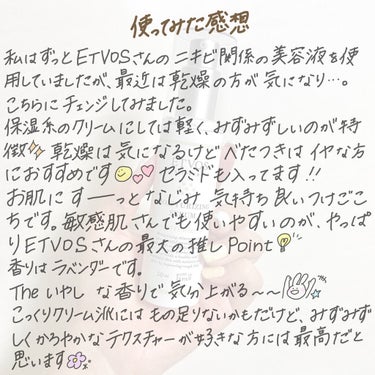 使ってみた感想
私はずっとETVOSさんのニキビ関係の美容液を使
用していましたが、最近は乾燥の方が気になり…。
こちらにチェンジしてみました。
保湿系のクリームにしては軽く、みずみずしいのが特
徴✨乾燥は気になるけどべたつきはイヤな方
におすすめです😊💕セラミドも入ってます!!
お肌にすーっとなじみ気持ち良いつけごこ
ちです。敏感肌さんでも使いやすいのが、やっぱ
りETVOSさんの最大の推しPoint💡
香りはラベンダーです。
Theいやしな香りで気分上がる〜〜
こっくりクリーム派にはもの足りないかもだけど、みずみず
しくかろやかなテクスチャーが好きな方には最高だと
思います